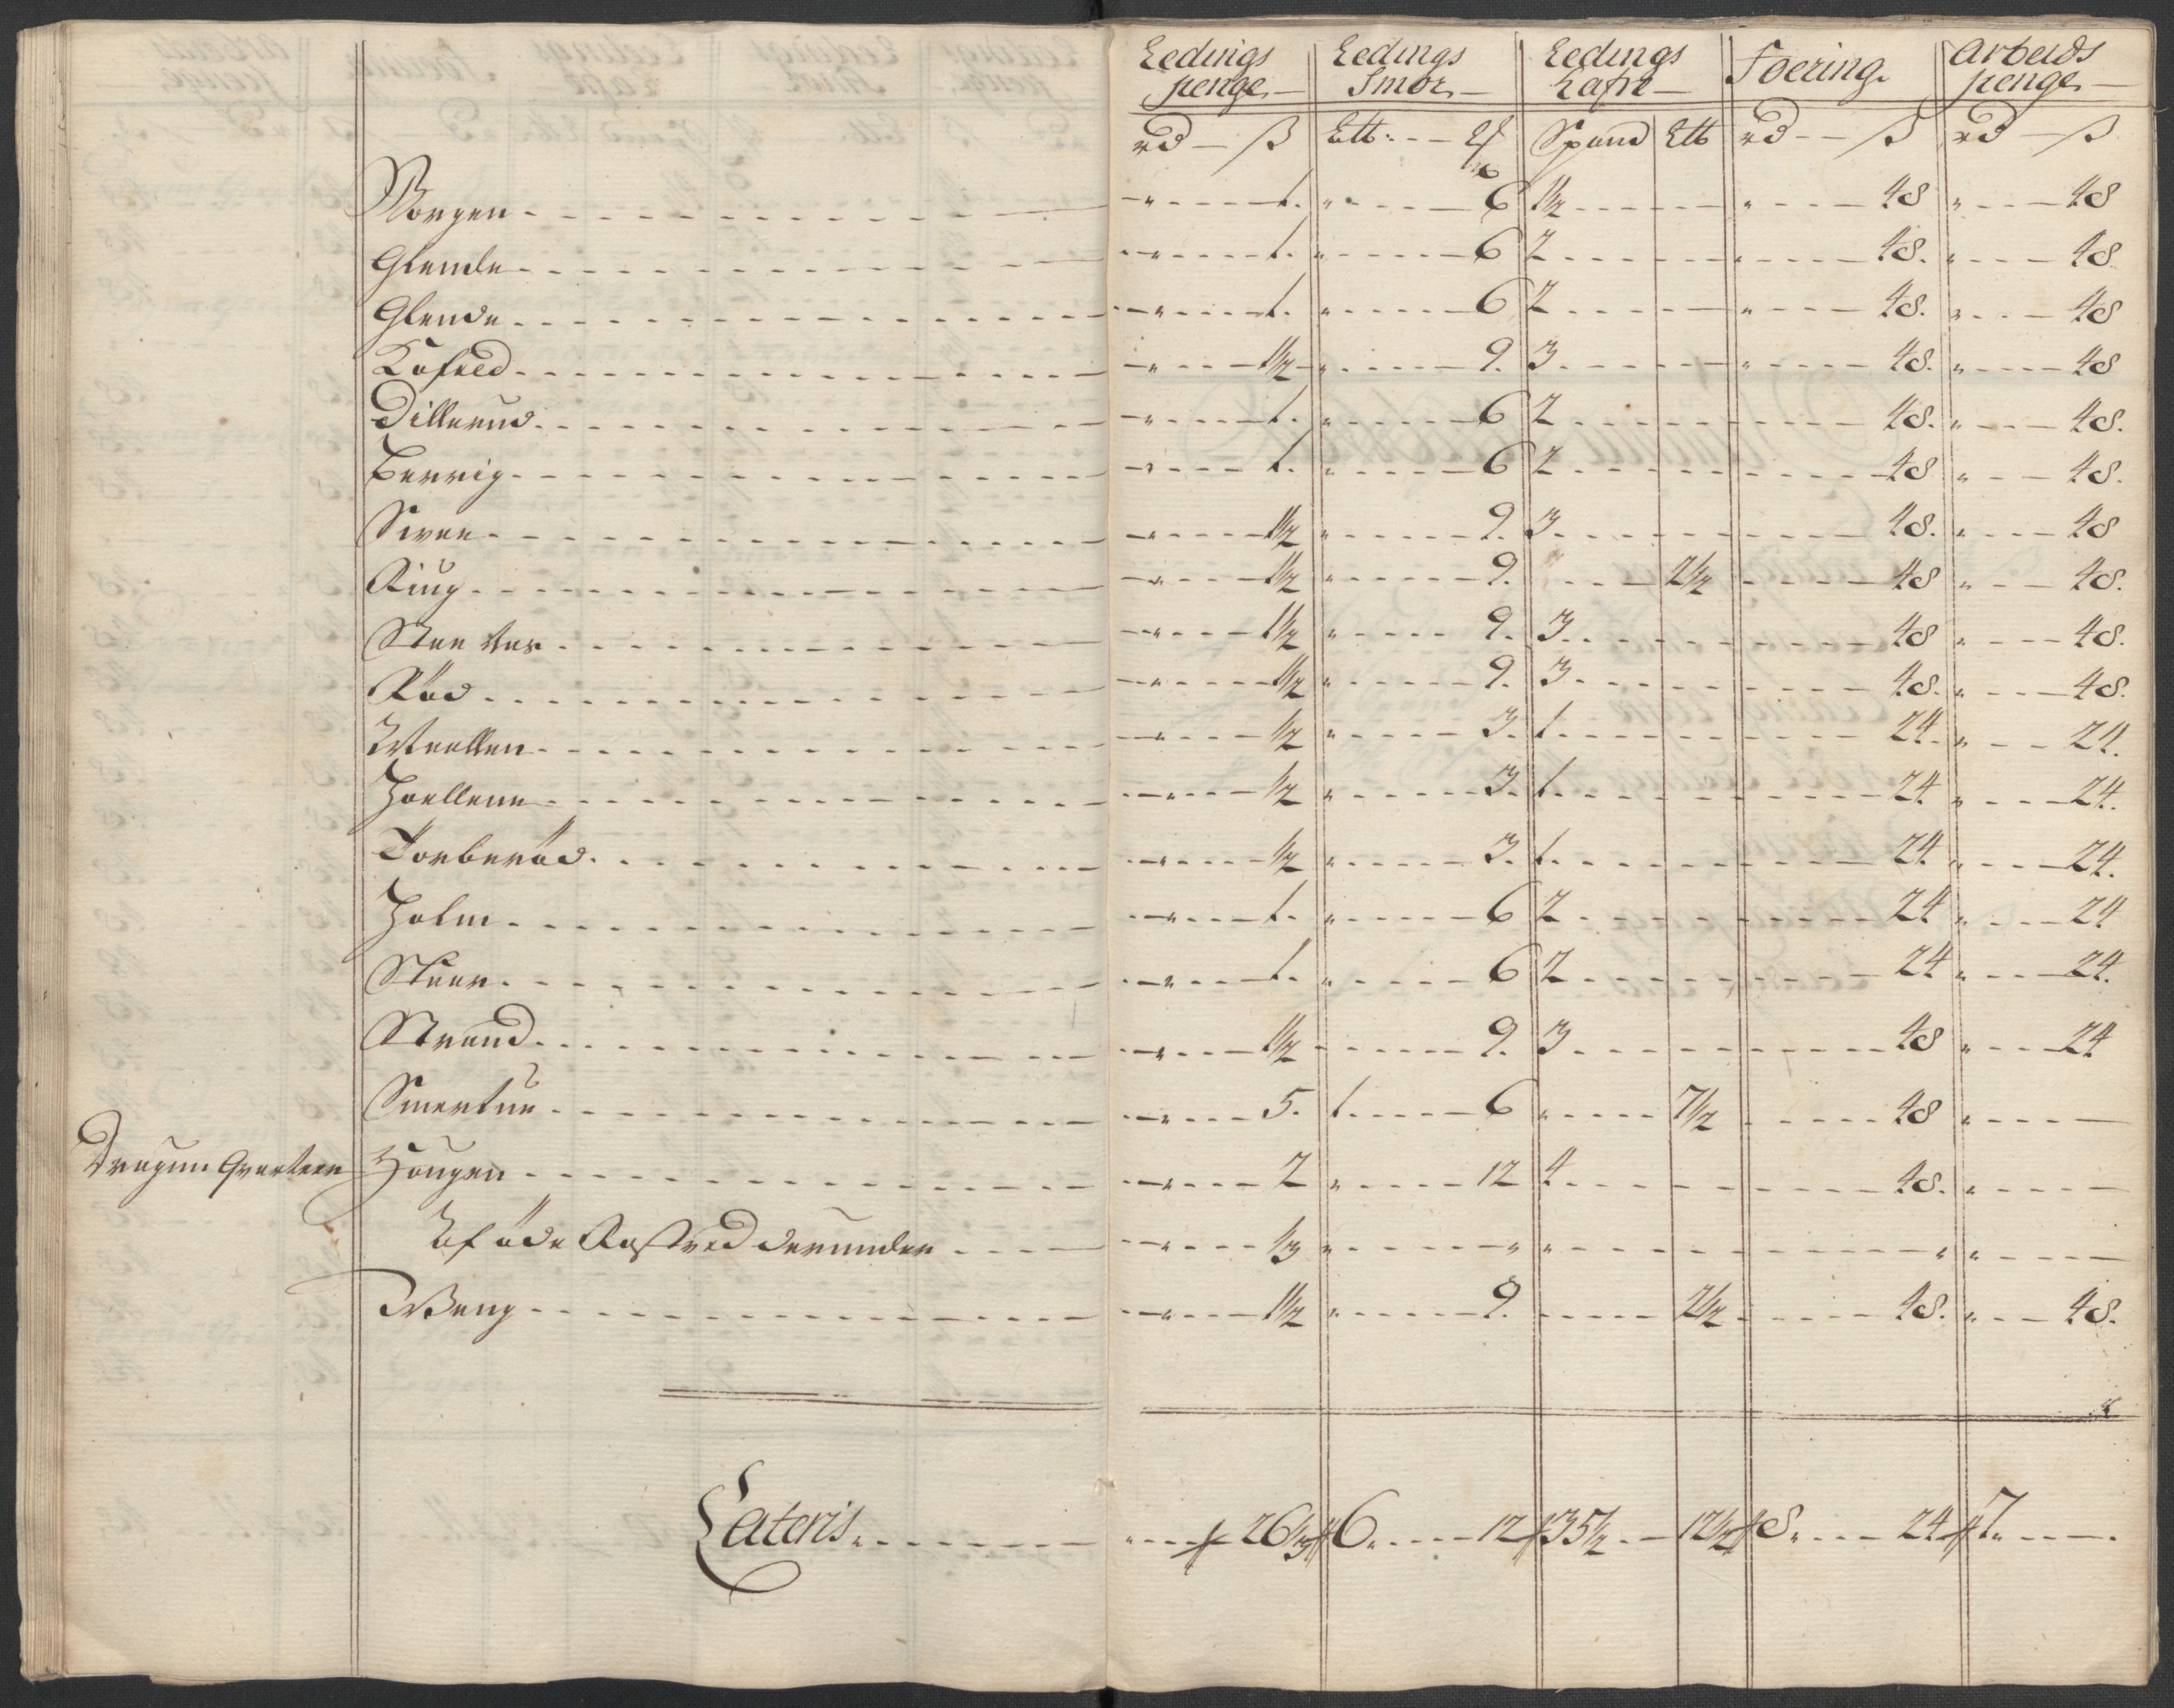 Ledings penge Ledings Smör Ledings Hafre Foering Arbeids penge
rd ß Ltt: ℔ Spand Ltt rd ß rd ß
Morgen " 1. " 6 1½ " 48 " 48
Glende " 1. " 6 2 " 48. " 48
Glende " 1. " 6 2 " 48. " 48
Kosred " 1½ " 9. 3 " 48. " 48
Dillerud " 1. " 6 2 48. " 48.
Berrig " 1. " 6 2 48 " 48.
" 1½ " 9. 3 48. " 48
Ring " 1½ " 9. 2½ 48 " 48.
" 1½ " 9. 3 48 " 48.
Röd " 1½ " 9. 3 48. " 48.
" ½ " 3. 1 24. " 24.
Hoellene " ½ " 3. 1 24 " 24.
Torberöd " ½ " 3. 1 24 " 24.
Holm " 1. " 6 2 24 " 24
" 1. " 6 2 24 " 24.
Strand " 1½ 9. 3 48 " 24
Smertue " 5. 1 6 " 7½ 48 "
Dragun Qvarteer Hougen " 2 " 12 4 48. "
Af öde Rostved derunder " ⅓ " " " " "
Weng " 1½ " 9. 2½ 48. " 48.
Lateris " 26⅓ 6 12 35½ 12½ 8 24 7